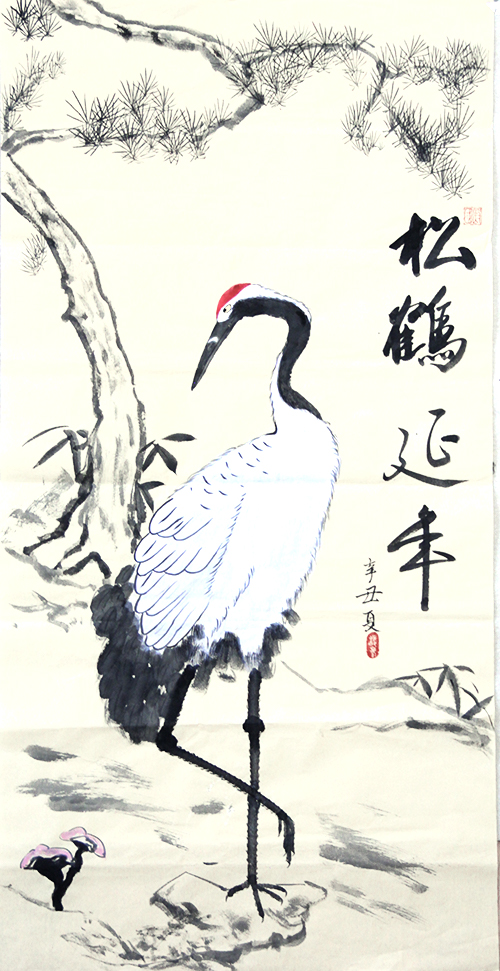 松鶴延年
辛丑夏